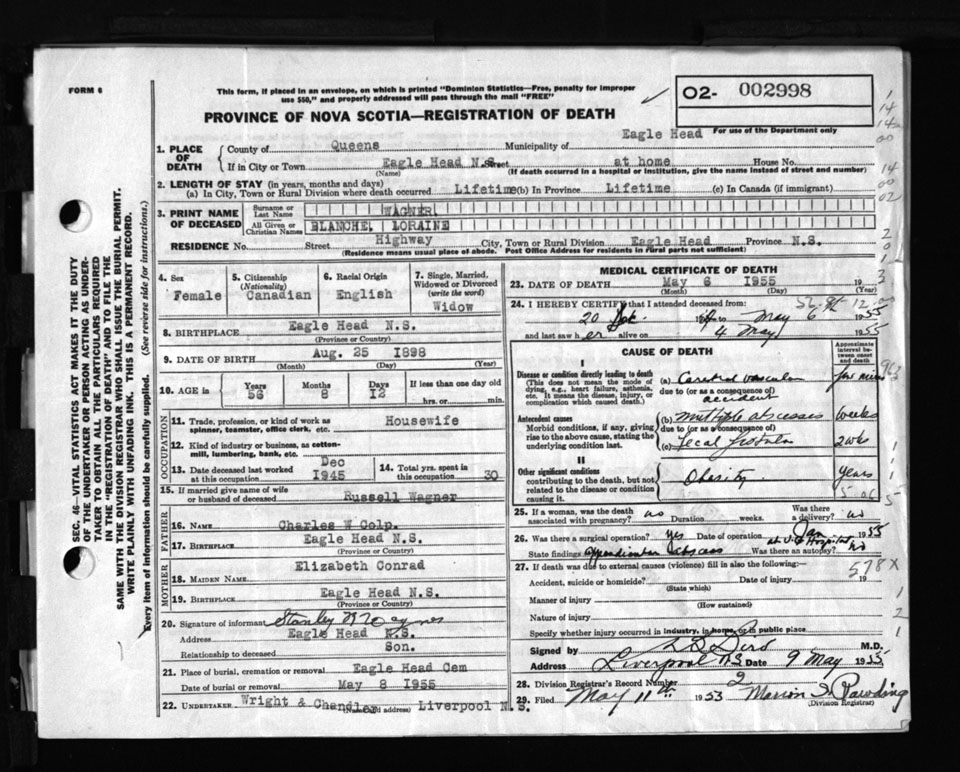 FORM 6
This form, if placed in an envelope, on which is printed "Dominion Statistics—Free, penalty for improper
use $50," and properly addressed will pass through the mail "FREE"
O2- 002998
PROVINCE OF NOVA SCOTIA—REGISTRATION OF DEATH
For use of the Department only
Eagle Head
1. PLACE OF DEATH
County of Queens Municipality of
If in City or Town Eagle Head N.S. Street at home House No.
(Name) (If death occurred in a hospital or institution, give the name instead of street and number)
2. LENGTH OF STAY (in years, months and days)
(a) In City, Town or Rural Division where death occurred Lifetime (b) In Province Lifetime (c) In Canada (if immigrant)
3. PRINT NAME OF DECEASED
Surname or Last Name WAGNER
All Given or Christian Names BLANCHE, LORAINE
RESIDENCE No. Street Highway City, Town or Rural Division Eagle Head Province N.S.
(Residence means usual place of abode. Post Office Address for residents in rural parts not sufficient)
4. Sex
Female
5. Citizenship
(Nationality)
Canadian
6. Racial Origin
English
7. Single, Married, Widowed or Divorced
(write the word)
Widow
8. BIRTHPLACE Eagle Head N.S.
(Province or Country)
9. DATE OF BIRTH Aug. 25 1898
(Month) (Day) (Year)
10. AGE in Years 56 Months 8 Days 12 If less than one day old
hrs. or min.
OCCUPATION
11. Trade, profession, or kind of work as
spinner, teamster, office clerk, etc. Housewife
12. Kind of industry or business, as cotton-
mill, lumbering, bank, etc.
13. Date deceased last worked
at this occupation Dec 1945
14. Total yrs. spent in
this occupation 30
15. If married give name of wife
or husband of deceased Russell Wagner
FATHER
16. NAME Charles W Colp.
17. BIRTHPLACE Eagle Head N.S.
(Province or Country)
MOTHER
18. MAIDEN NAME Elizabeth Conrad
19. BIRTHPLACE Eagle Head N.S.
(Province or Country)
20. Signature of informant Stanley
Address Eagle Head N.S.
Relationship to deceased Son.
21. Place of burial, cremation or removal Eagle Head Cem
Date of burial or removal May 8 1955
22. UNDERTAKER Wright & Chandler Liverpool N.S.
(Name and address)
MEDICAL CERTIFICATE OF DEATH
23. DATE OF DEATH May 6 1955
(Month) (Day) (Year)
24. I HEREBY CERTIFY that I attended deceased from:
20 19 to May 6 1955
and last saw her alive on 4 May 1955
CAUSE OF DEATH
Approximate interval between onset and death
I
Disease or condition directly leading to death
(This does not mean the mode of
dying, e.g., heart failure, asthenia,
etc. It means the disease, injury, or
complication which caused death.)
(a) Cerebral vascular
due to (or as a consequence of)
accident
few mins
Antecedent causes
Morbid conditions, if any, giving
rise to the above cause, stating the
underlying condition last.
(b) Multiple abscesses weeks
due to (or as a consequence of)
(c) Fecal fistula 2 wks
II
Other significant conditions
contributing to the death, but not
related to the disease or condition
causing it
Obesity years
25. If a woman, was the death
associated with pregnancy? no Duration weeks. Was there
a delivery? no
26. Was there a surgical operation? yes Date of operation Jan 1955
State findings appendicular abscess at V.G. Hospital Was there an autopsy? No
27. If death was due to external causes (violence) fill in also the following:—
578X
Accident, suicide or homicide? Date of injury 19
(State which)
Manner of injury
(How sustained)
Nature of injury
Specify whether injury occurred in industry, in home, or in public place
Signed by M.D.
Address Liverpool N.S. Date 9 May 1955
28. Division Registrar's Record Number 2
29. Filed May 11th 1953 Marion S.
(Division Registrar)
SEC. 46—VITAL STATISTICS ACT MAKES IT THE DUTY
OF THE UNDERTAKER OR PERSON ACTING AS UNDER-
TAKER TO OBTAIN ALL THE PARTICULARS REQUIRED
IN THE "REGISTRATION OF DEATH" AND TO FILE THE
SAME WITH THE DIVISION REGISTRAR WHO SHALL ISSUE THE BURIAL PERMIT.
WRITE PLAINLY WITH UNFADING INK. THIS IS A PERMANENT RECORD.
Every item of information should be carefully supplied. (See reverse side for instructions.)